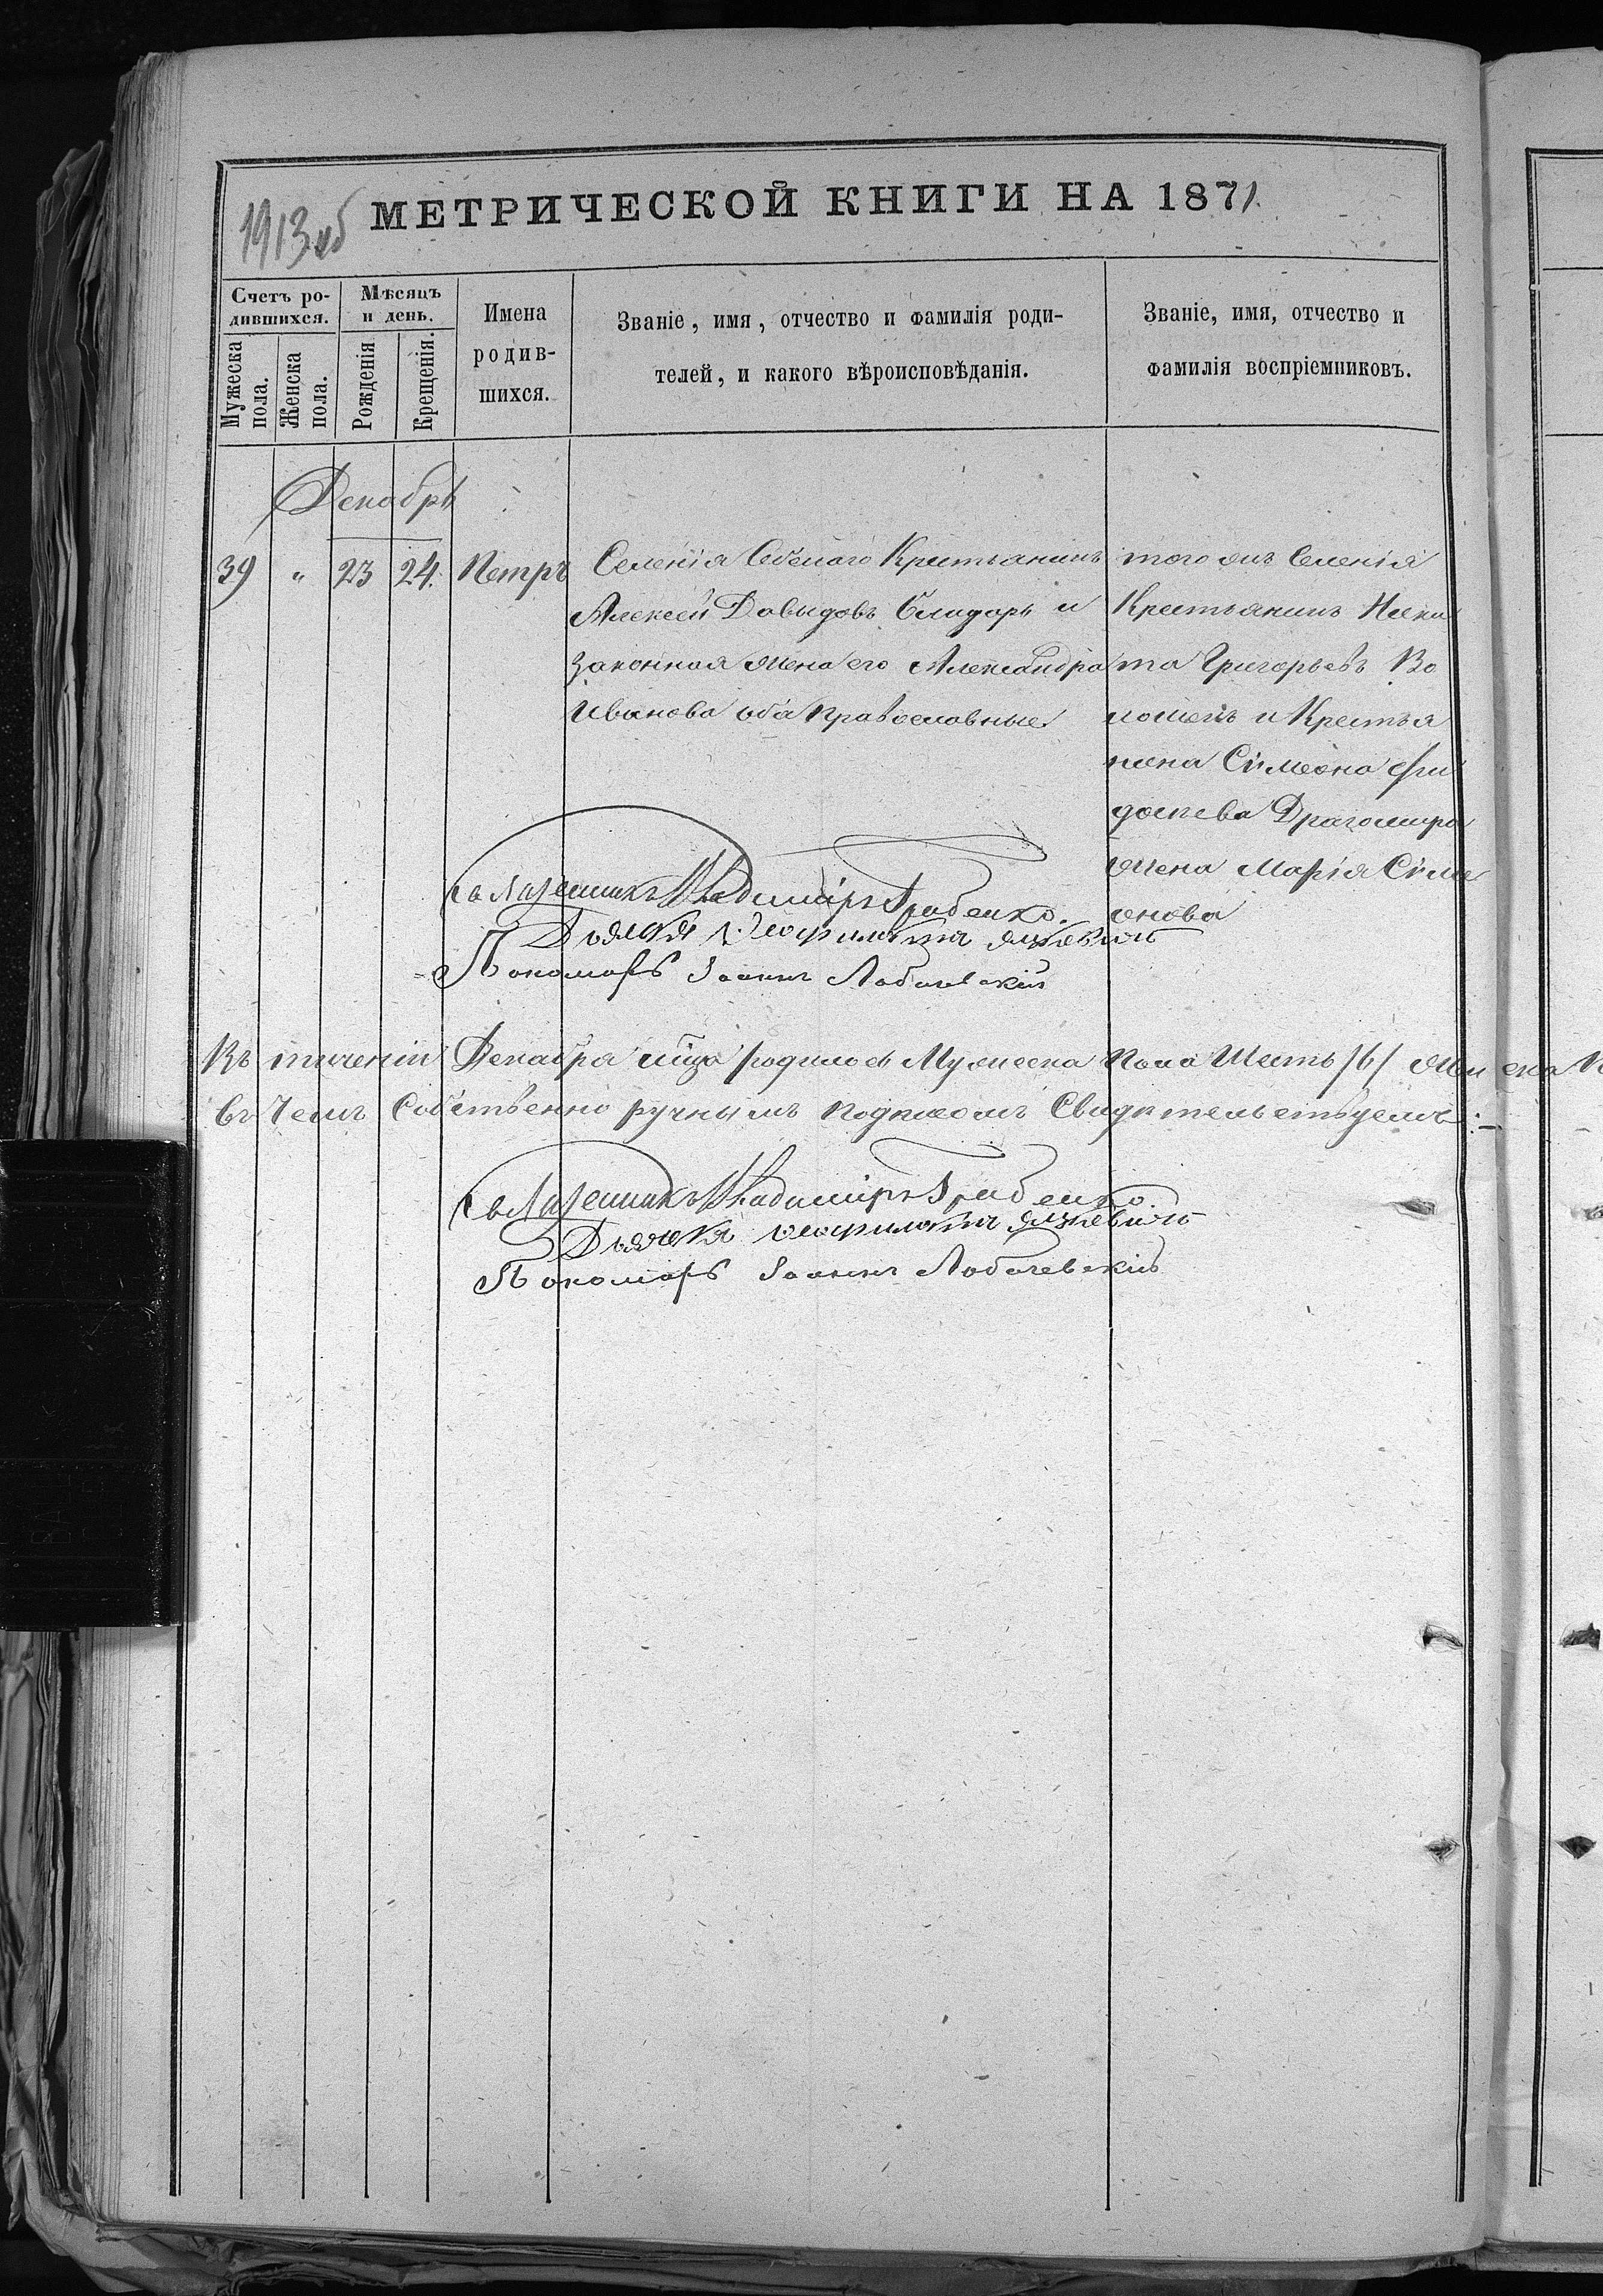 1913 об
МЕТРИЧЕСКОЙ КНИГИ НА 1871.
Счетъ ро-
дившихся.
Мужеска
пола.
Женска
пола.
Мѣсяцъ
и день.
Рожденія
Крещенія.
Имена
родив-
шихся.
Званіе, имя, отчество и фамилія роди-
телей, и какого вѣроисповѣданія.
Званіе, имя, отчество и
фамилія воспріемниковъ.
Декабрь
39 " 23 24. Петръ
Селенія Крестьянинъ
Алексей Давыдовъ Слидарь и
законная жена его Александра
Иванова оба православные
того жъ Селенія
Крестьянинъ Ники
та Григорьевъ Во
лошенъ и Крестья
нина Сімеона
Драгомира
жена Марія Сіме
онова
Священникъ Владиміръ Грабенко.
Дьячекъ
Пономарь Іоаннъ Лобачевскій
Въ теченіи Декабря мца родилось Мужеска Пола Шесть /6/ Женска
въ Чемъ Собственно ручнымъ подписомъ Свидѣтельствуемъ: -
Священникъ Владиміръ Грабенко
Дьячекъ
Пономарь Іоаннъ Лобачевскій